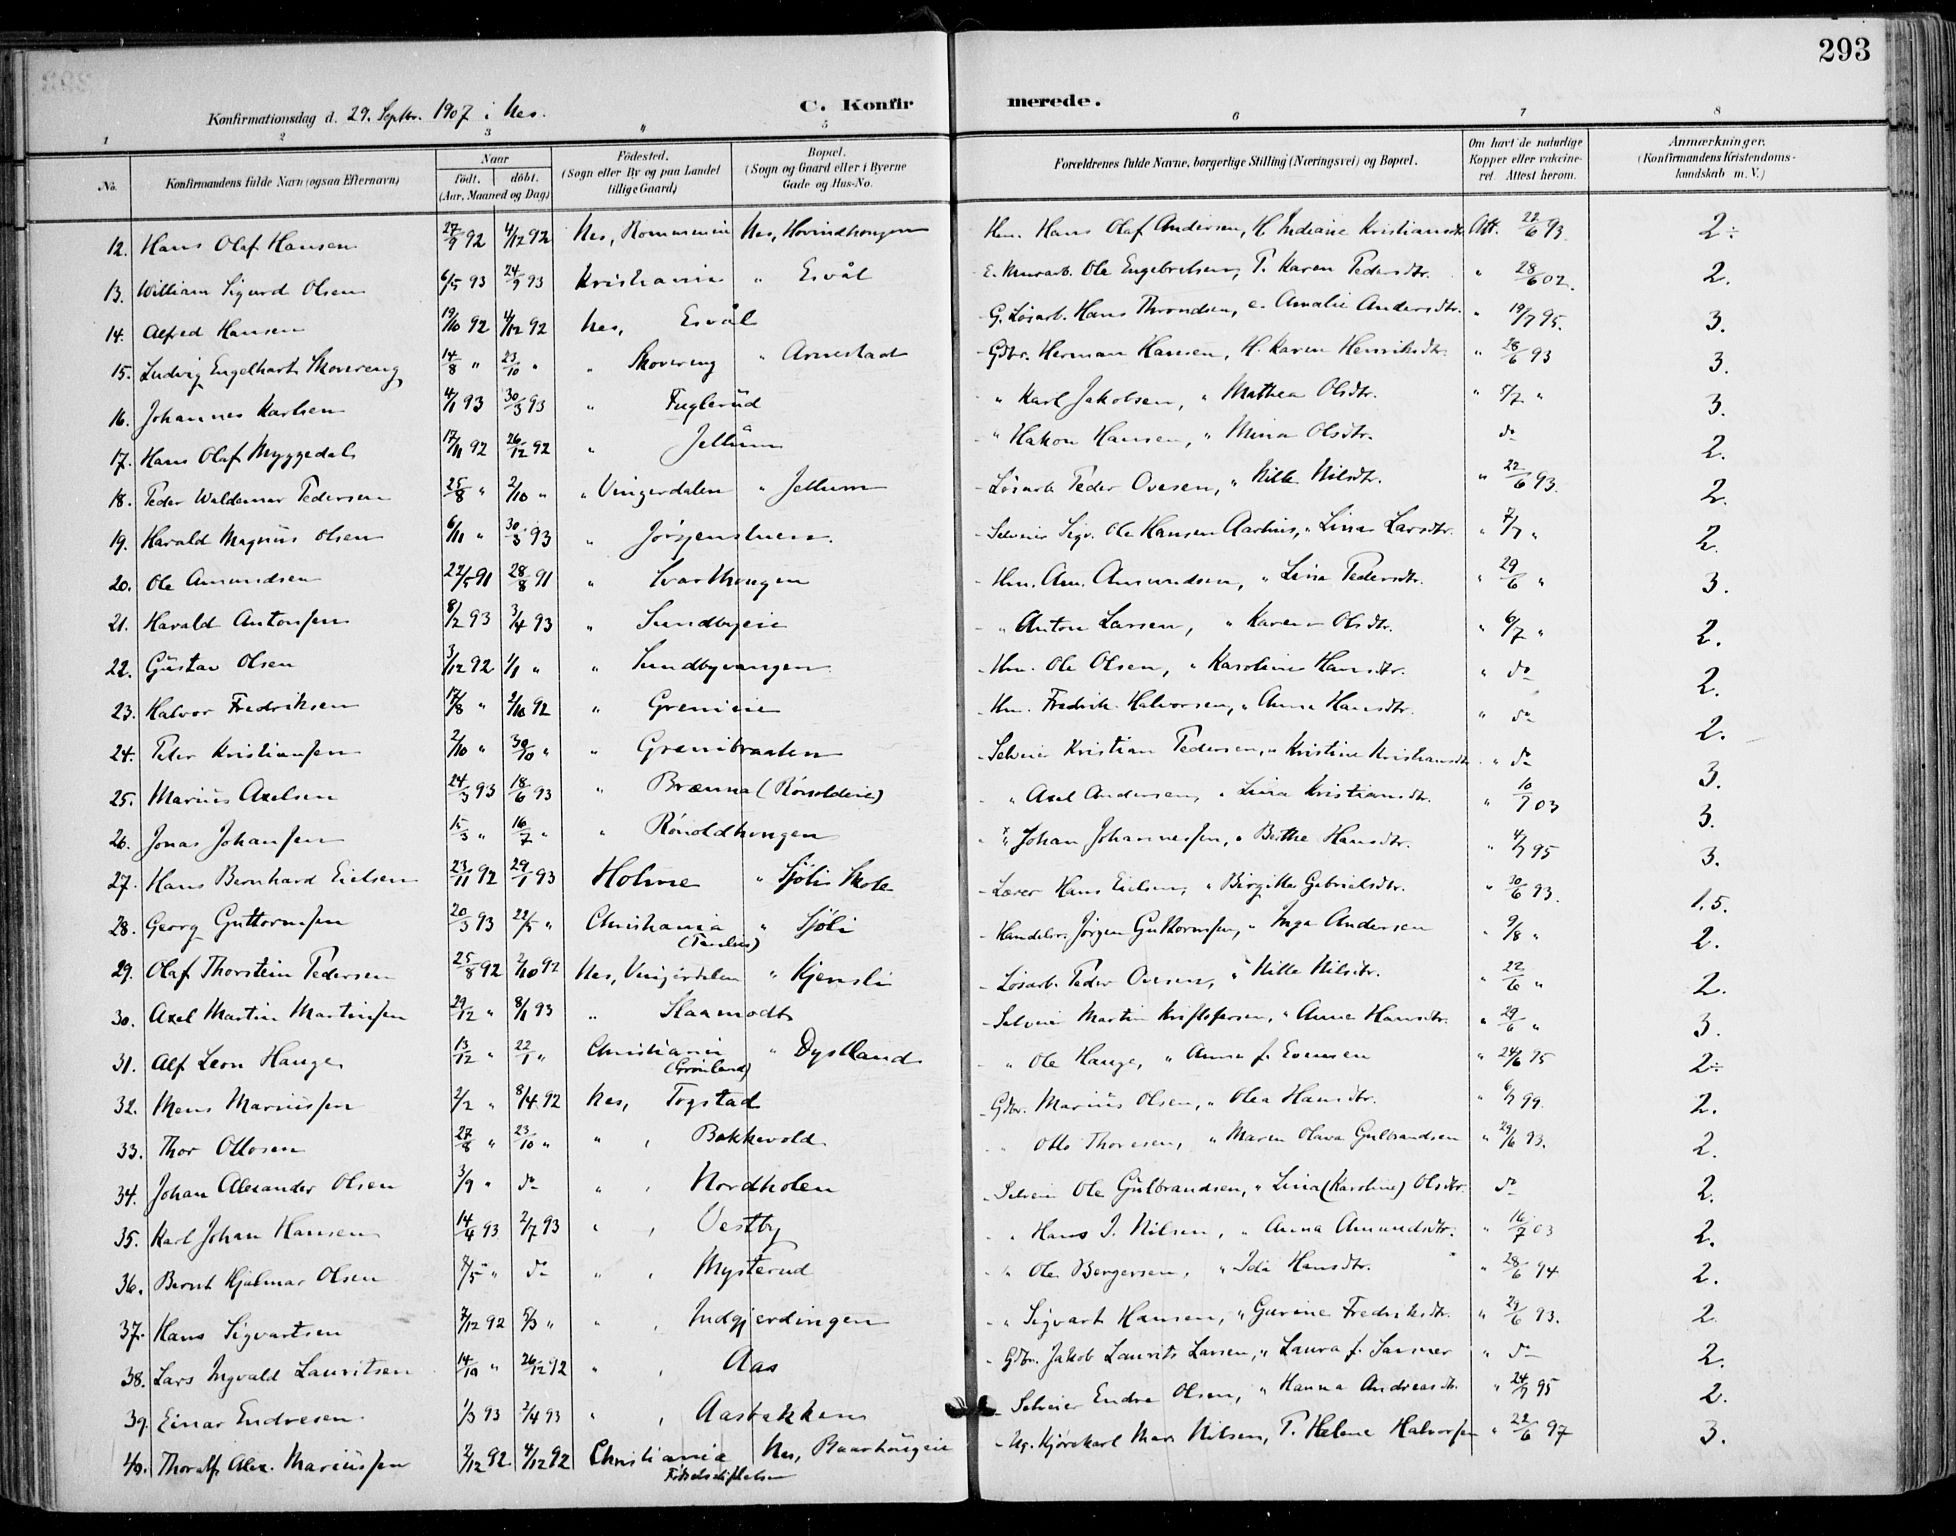 293
Konfirmationsdag d. 29. Septbr. 1907 i Nes.
C. Konfirmerede.
1 2 3 " 5 6 7 8
No. Konfirmandens fulde Navn (ogsaa Efternavn) Naar født. døbt. (Aar, Maaned og Dag) Fødested. (Sogn eller By og paa Landet tillige Gaard) Bopæl. (Sogn og Gaard eller i Byerne Gade og Hus-No. Forældrenes fulde Navne, borgerlige Stilling (Næringsvei) og Bopæl. Om havt de naturlige Kopper eller vakcineret. Attest herom. Anmærkninger. (Konfirmandens Kristendomskundskab m. V.)
12. Hans Olaf Hansen 27/9 92 4/12 92 Nes, Nes, Hovindhougen Hm. Hans Olaf Andersen, H. Indiane Kristiansdtr. Att. 22/6 93. 2÷
13. William Sigurd Olsen 6/5 93 24/9 93 Kristiania " Esvål E. Murarb. Ole Engebretsen, T. Karen Pedersdtr. " 28/6 02. 2.
14. Alfred Hansen 19/10 92 4/12 92 Nes, Esvål G. Løsarb. Hans Throndsen, e. Amalie Andersdtr. " 19/7 95. 3.
15. Ludvig Engelhart Skovereng 14/8 " 23/10 " " Skovereng " Arnestad Gdbr. Herman Hansen, H. Karen Henriksdtr. " 28/6 93 3.
16. Johannes Karlsen 4/1 93 30/3 93 " Fuglerud " Karl Jakobsen, " Mathea Olsdtr. " 5/7 " 3.
17. Hans Olaf Myggedal 17/11 92 26/12 92 " Jellum " Hakon Hansen, " Mina Olsdtr. do 2.
18. Peder Waldemar Pedersen 25/8 " 2/10 " " Vingerdalen " Jellum Løsarb. Peder Ovesen, " Nille Nilsdtr. " 22/6 93. 2.
19. Harald Magnus Olsen 6/11 " 30/3 93 " Jørgenstuen. Selveier Sigv. Ole Hansen Aarhus, " Lina Larsdtr. " 7/7 " 2.
20. Ole Amundsen 22/5 91 28/8 91 " Svarthougen Hm. Am. Amundsen, " Lina Pedersdtr. " 29/6 " 3.
21. Harald Antonsen 8/2 93 3/4 93 " Sundbyeie " Anton Larsen, " Karen Olsdtr. " 6/7 " 2.
22. Gustav Olsen 3/12 92 1/1 " " Sundbyvangen Hm. Ole Olsen, " Karoline Hansdtr. " do 2.
23. Halvor Fredriksen 17/8 " 2/10 92 " Grenieie Hm. Fredrik Halvorsen, " Anna Hansdtr. " do 2.
24. Peter Kristiansen 2/10 " 30/10 " " Grenibraaten Selveier Kristian Pedersen, " Kristine Kristiansdtr. " do 3.
25. Marius Axelsen 24/3 93 18/6 93 " Brænna (Rønoldeie) " Axel Andersen, " Lina Kristiansdtr. " 10/7 03 3.
26. Jonas Johansen 15/3 " 16/7 " " Rønoldhougen " Johan Johannessen, " Berthe Hansdtr. " 4/7 95 3.
27. Hans Bernhard Eielsen 23/11 92 29/1 93 Holme " Sjøli Skole Lærer Hans Eielsen, " Birgitte Gabrielsdtr. " 30/6 93. 1.5.
28. Georg Guttormsen 20/3 93 22/5 " Christiania " Sjøli Handelsr. Jørgen Guttormsen, " Inga Andersen " 9/8 " 2.
29. Olaf Thorstein Pedersen 25/8 92 2/10 92 Nes, Vingerdalen " Kjensli Løsarb. Peder Ovesen, " Nille Nilsdtr. " 22/6 " 2.
30. Axel Martin Martinsen 29/12 " 8/1 93 " Slaamodt Selveier Martin Kristofersen, " Anne Hansdtr. " 29/6 " 3.
31. Alf Leon Hauge 13/12 " 22/1 " Christiania (Grønland) " Dystland " Ole Hauge, " Anna f. Evensen " 24/6 95 2÷
32. Mens Mariussen 2/2 " 8/4 92 Nes, Togstad Gdbr. Marius Olsen, " Olea Hansdtr. " 6/7 99. 2.
33. Thor Ottosen 27/8 " 23/10 " " Bakkevold " Otto Thoresen, " Maren Olava Gulbrandsen " 29/6 93. 2.
34. Johan Alexander Olsen 3/9 " do " Nordholen Selveier Ole Gulbrandsen, " Lina (Karoline) Olsdtr. do 2.
35. Karl Johan Hansen 14/4 93 2/7 93 " Vestby " Hans J. Nilsen, " Anna Amundsdtr. " 16/7 03 2.
36. Bernt Hjalmar Olsen 7/5 " do " Mysterud " Ole Bergersen, " Ida Hansdtr. " 28/6 94 2.
37. Hans Sigvartsen 7/12 92 5/3 " " Indgjerdingen " Sigvart Hansen, " Gurine Fredriksdtr. " 29/6 93. 2.
38. Lars Ingvald Lauritsen 14/10 " 26/12 92 " Aas Gdbr. Jakob Laurits Larsen, " Laura f. Sanner " do 2.
39. Einar Endresen 1/3 93 2/4 93 " Aasbakken Selveier Endre Olsen, " Hanna Andreasdtr. " 24/7 95 2.
40. Thoralf Alex. Mariussen 2/12 92 4/12 92 Christiania Nes, Baarhougeie Ug. Kjørekarl Mar. Nilsen, T. Helene Halvorsen " 22/6 97 3.